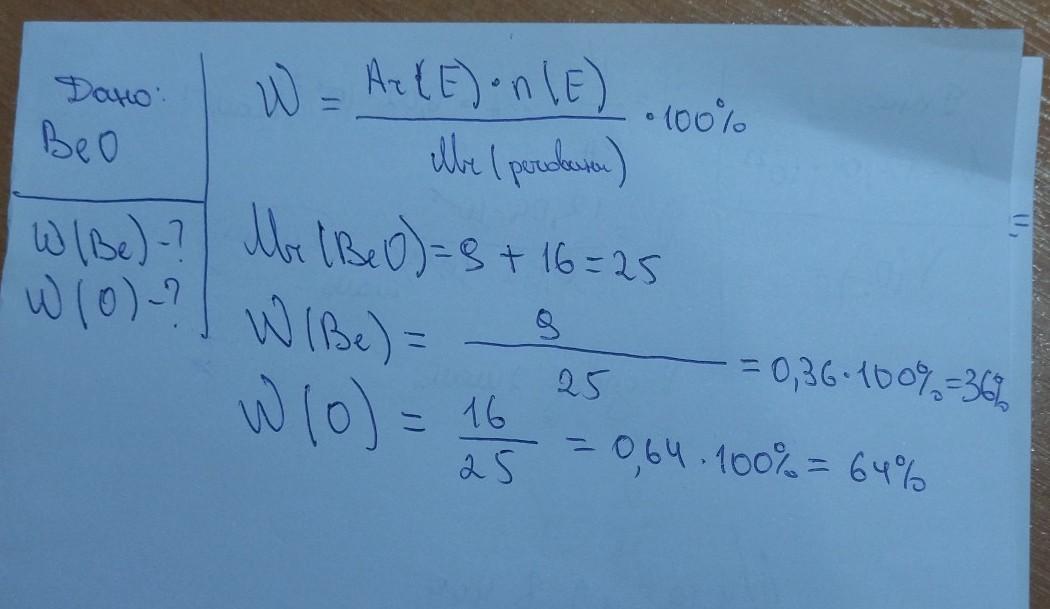 Дано:
BeO
W(Be)-?
W(O)-?
W = Ar(E)·n(E) / Mr(речовини) ·100%
Mr(BeO)=9+16=25
W(Be) = 9 / 25 = 0,36·100%=36%
W(O) = 16 / 25 = 0,64·100%= 64%
=